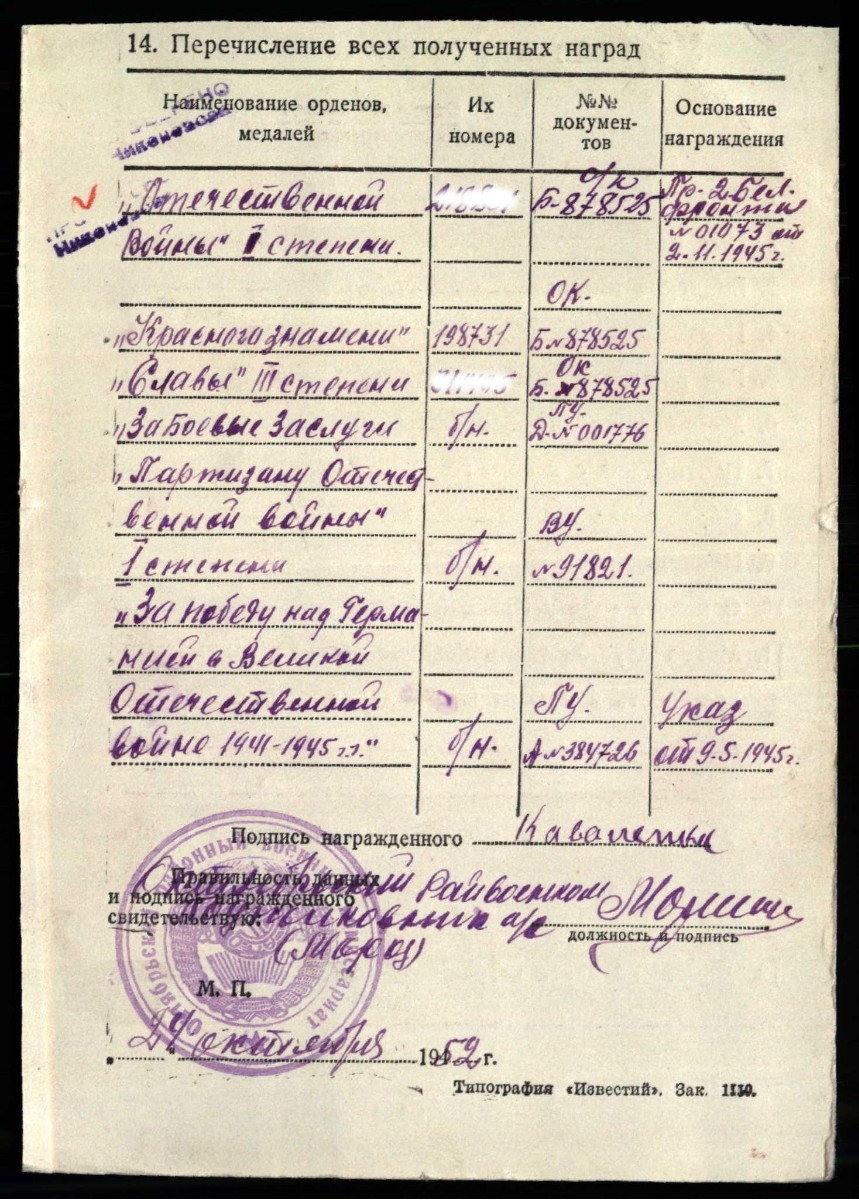 14. Перечисление всех полученных наград
Наименование орденов, медалей
Их номера
№№ документов
Основание награждения
„Отечественной о/к Пр. 2 Бел.
Б-878525 фронта
Войны" I степени. №01073 от
2.11.1945г.
ОК.
„Красного знамени" 198731 Б №878525
ОК
„Славы" III степени Б. №878525
ПУ.
„За Боевые Заслуги б/н. Д-№001776
„Партизану Отечест-
венной войны" ВУ.
I степени б/н. №91821.
„За победу над Герма-
нией в Великой
Отечественной ПУ. Указ
войне 1941-1945 г.г." б/н. А №384726 от 9.5.1945г.
Подпись награжденного
Правильность данных
и подпись награжденного
свидетельствую:
Октябрьский Райвоенком
должность и подпись
(Мороз)
М. П.
„24" октября 1952 г.
Типография «Известий». Зак. 1110.